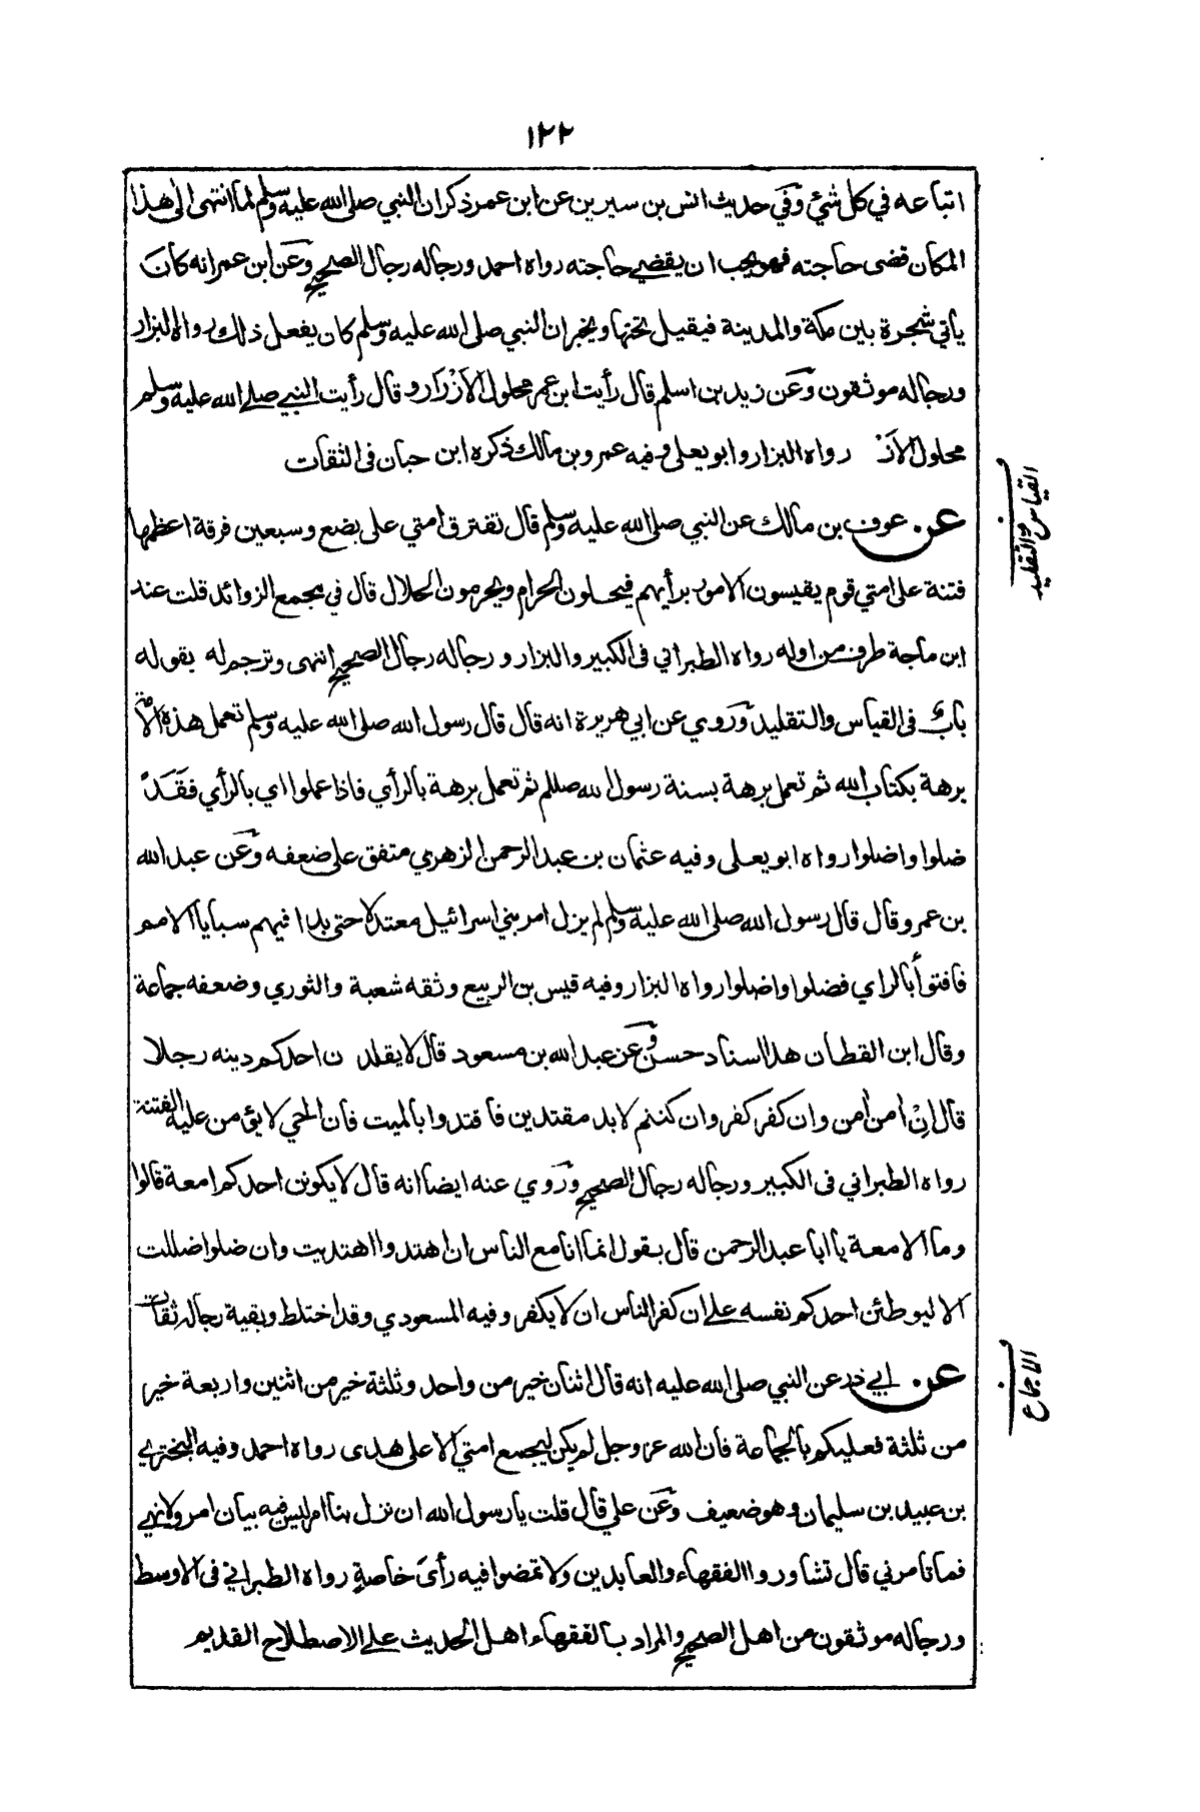 ١٢٢
اتباعه في كل شيء وفي حديث انس بن سيرين عن ابن عمر ذكر ان النبي صلى الله عليه وسلم لما انتهى الى هذا
المكان قضى حاجته فهو يحب ان يقضي حاجته رواه احمد ورجاله رجال الصحيح وعن ابن عمر انه كان
يأتي شجرة بين مكة والمدينة فيقيل تحتها ويخبر ان النبي صلى الله عليه وسلم كان يفعل ذلك رواه البزار
ورجاله موثقون وعن زيد بن اسلم قال رأيت ابن عمر محلول الأزرار وقال رأيت النبي صلى الله عليه وسلم
محلول الأز رواه البزار وابو يعلى وفيه عمرو بن مالك ذكره ابن حبان في الثقات
القياس والتقليد
عن عوف بن مالك عن النبي صلى الله عليه وسلم قال تفترق امتي على بضع وسبعين فرقة اعظمها
فتنة على امتي قوم يقيسون الامور برأيهم فيحلون الحرام ويحرمون الحلال قال في مجمع الزوائد قلت عند
ابن ماجة طرف من اوله رواه الطبراني في الكبير والبزار ورجاله رجال الصحيح انتهى وترجم له بقوله
باب في القياس والتقليد وروي عن ابي هريرة انه قال قال رسول الله صلى الله عليه وسلم تعمل هذه الأمة
برهة بكتاب الله ثم تعمل برهة بسنة رسول الله صللم ثم تعمل برهة بالرأي فاذا عملوا اي بالرأي فقد
ضلوا واضلوا رواه ابو يعلى وفيه عثمان بن عبد الرحمن الزهري متفق على ضعفه وعن عبد الله
بن عمرو قال قال رسول الله صلى الله عليه وسلم لم يزل امر بني اسرائيل معتدلا حتى بدا فيهم سبايا الامم
فافتوا بالراي فضلوا واضلوا رواه البزار وفيه قيس بن الربيع وثقه شعبة والثوري وضعفه جماعة
وقال ابن القطان هذا اسناد حسن وعن عبد الله بن مسعود قال لا يقلد ن احدكم دينه رجلا
قال ان امن امن وان كفر كفر وان كنتم لا بد مقتدين فاقتدوا بالميت فان الحي لا يؤمن عليه الفتنة
رواه الطبراني في الكبير ورجاله رجال الصحيح وروي عنه ايضا انه قال لا يكونن احدكم امعة قالوا
وما الامعة يا ابا عبد الرحمن قال يقول انما انا مع الناس ان اهتدوا اهتديت وان ضلوا ضللت
الا ليوطئن احدكم نفسه على ان كفر الناس ان لا يكفر وفيه المسعودي وقد اختلط وبقية رجاله ثقات
الاجماع
عن ابي ذر عن النبي صلى الله عليه انه قال اثنان خير من واحد وثلثة خير من اثنين واربعة خير
من ثلثة فعليكم بالجماعة فان الله عز وجل لم يكن ليجمع امتي الا على هدى رواه احمد وفيه البختري
بن عبيد بن سليمان وهو ضعيف وعن علي قال قلت يا رسول الله ان نزل بنا امر ليس فيه بيان امر ولا نهي
فما تأمرني قال تشاوروا الفقهاء والعابدين ولا تمضوا فيه رأي خاصة رواه الطبراني في الاوسط
ورجاله موثقون من اهل الصحيح والمراد بالفقهاء اهل الحديث على الاصطلاح القديم